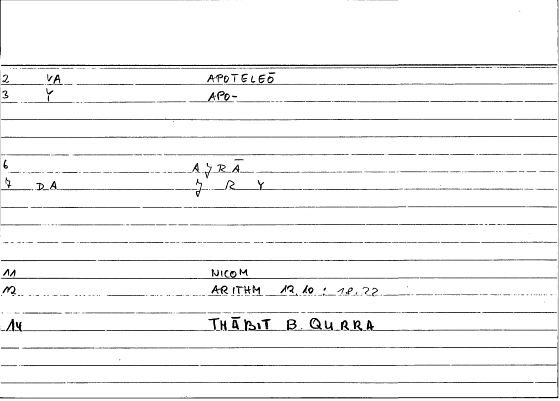 2 VA APOTELEŌ
3 Y APO-
6 AȷRĀ
7 DA ȷ R Y
11 NICOM
12 ARITHM 12.10 : 18.22
14 THĀBIT B. QURRA